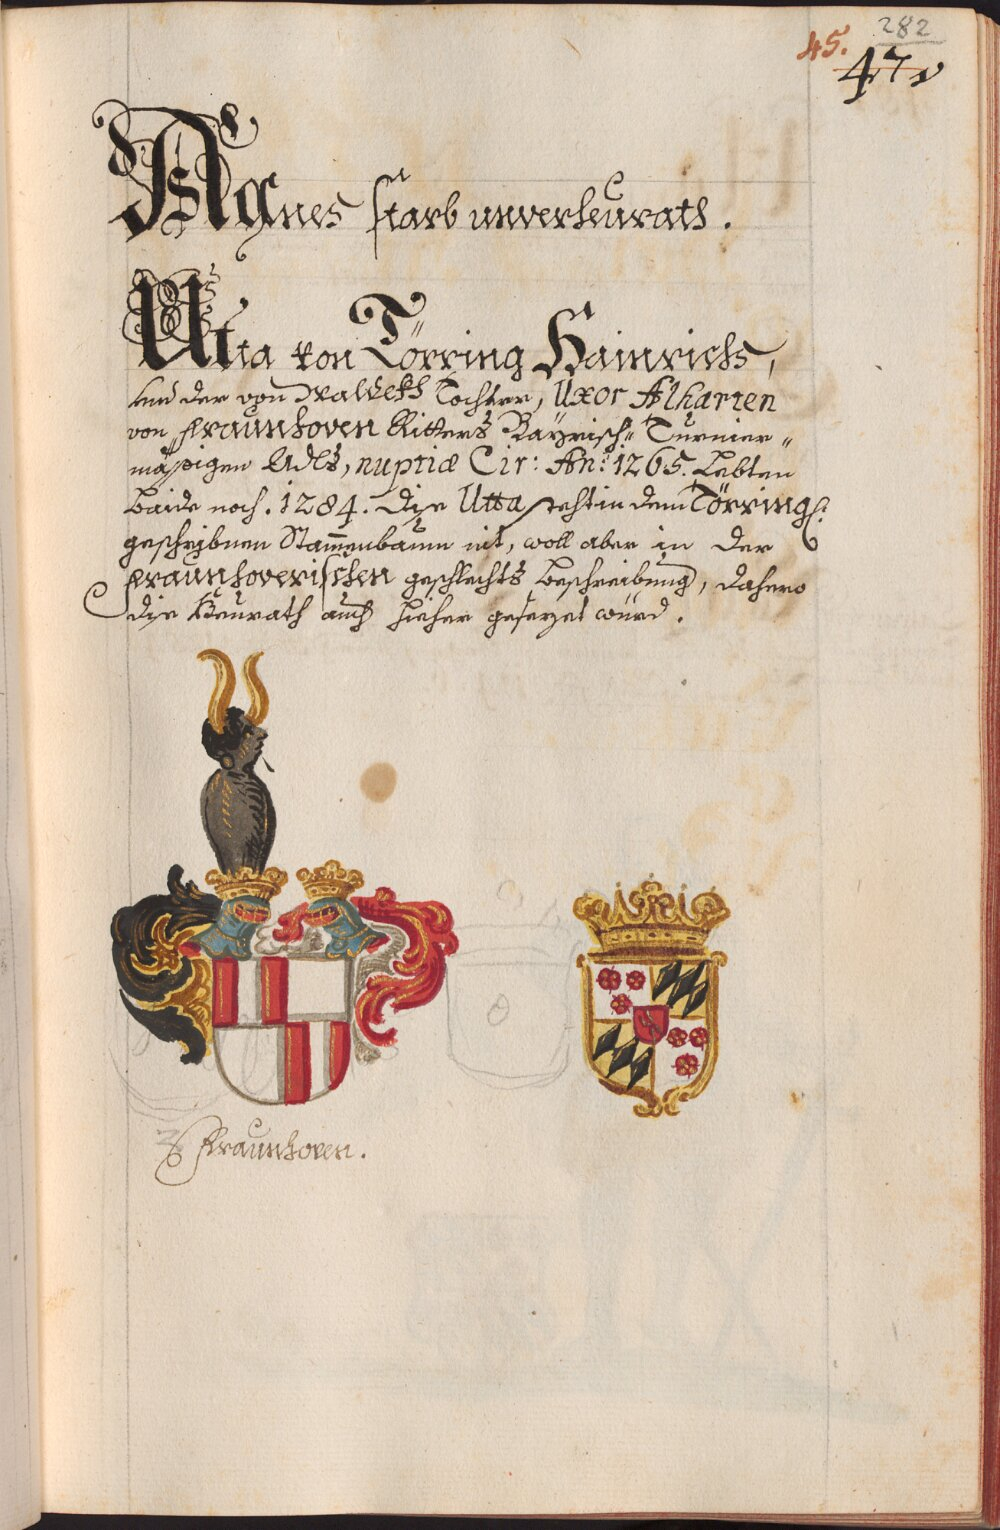 282
45.
47
Agnes starb unverheurath.
Utta von Törring Hainrichs,
und der von Waldekh Tochter, Uxor Alharten
von Fraunhoven Ritters Bayrisch= Turnier=
mässigen Adls, nuptiæ Cir: An: 1265. Lebten
baide noch. 1284. dise Utta steht in dem Törring:
geschribnen Stam̅enbaum nit, woll aber in der
Fraunhoverischen geschlechts beschreibung, dahero
dise Heurath auch hieher gesezet würd.
Fraunhoven.